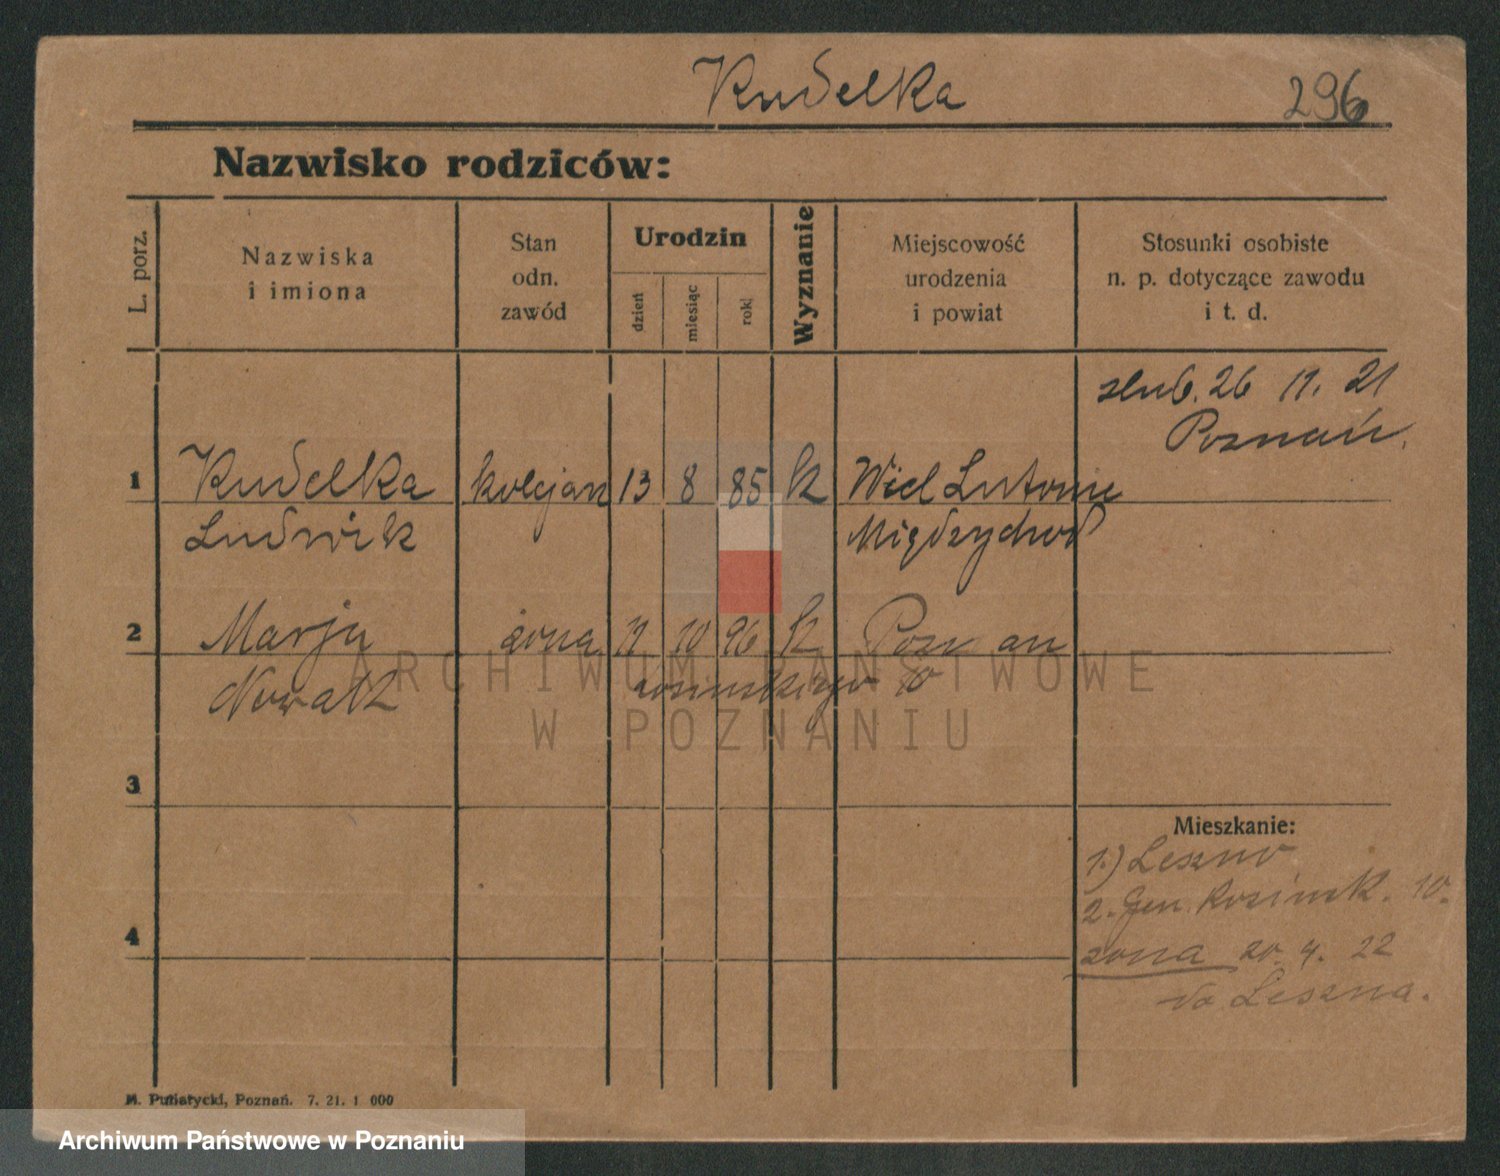 Kudelka 296
Nazwisko rodziców:
L. porz.
Nazwiska
i imiona
Stan
odn.
zawód
Urodzin
dzień
miesiąc
rok
Wyznanie
Miejscowość
urodzenia
i powiat
Stosunki osobiste
n. p. dotyczące zawodu
i t. d.
slub. 26 11. 21
Poznań.
1 Kudelka kolejarz 13 8 85 k Wiel Lutomie
Ludwik Międzychod
2 Marja żona 11 10 96 k Poznan
Nowak 10
3
4
Mieszkanie:
1.) Leszno
2. Gen. Kosinsk. 10.
zona 20. 4. 22
do Leszna.
M. Putiatycki, Poznań. 7. 21. 1 000
ARCHIWUM PAŃSTWOWE
W POZNANIU
Archiwum Państwowe w Poznaniu